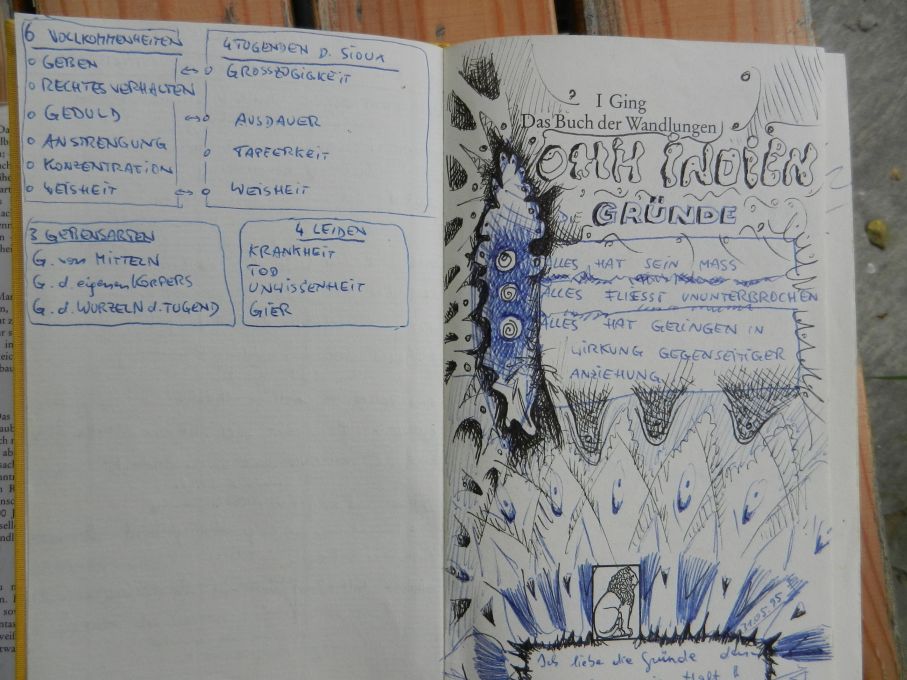 6 VOLLKOMMENHEITEN
GEBEN
RECHTES VERHALTEN
GEDULD
ANSTRENGUNG
KONZENTRATION
WEISHEIT
4 TUGENDEN D. SIOUX
GROSSZÜGIGKEIT
AUSDAUER
TAPFERKEIT
WEISHEIT
3 GEBENSARTEN
G. von MITTELN
G. d. eigenen KÖRPERS
G. d. WURZELN d. TUGEND
4 LEIDEN
KRANKHEIT
TOD
UNWISSENHEIT
GIER
I Ging
Das Buch der Wandlungen
OHH INDIEN
GRÜNDE
ALLES HAT SEIN MASS
ALLES FLIESST UNUNTERBROCHEN
ALLES HAT GELINGEN IN
WIRKUNG GEGENSEITIGER
ANZIEHUNG
31.05.95
Ich liebe die Gründe